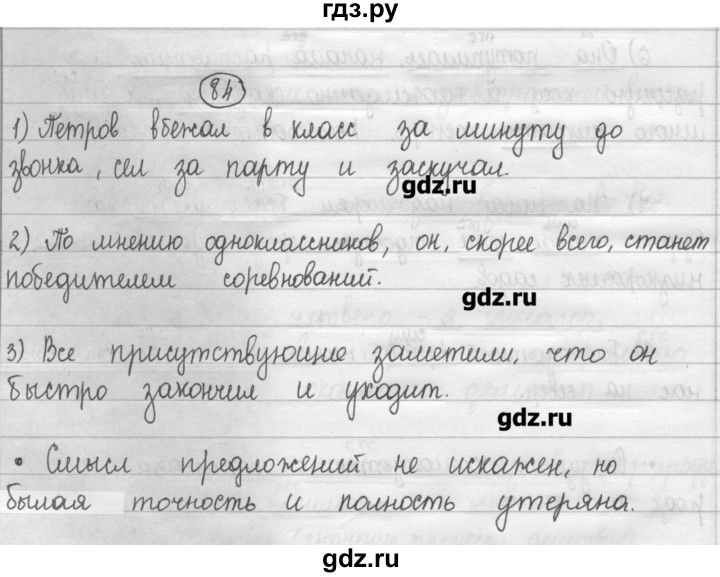 гдз.ру
84
1) Петров вбежал в класс за минуту до
звонка, сел за парту и заскучал.
gdz.ru
2) По мнению одноклассников, он, скорее всего, станет
победителем соревнований.
gdz.ru
3) Все присутствующие заметили, что он
быстро закончил и уходит.
gdz.ru
• Смысл предложений не искажен, но
былая точность и полность утеряна.
gdz.ru